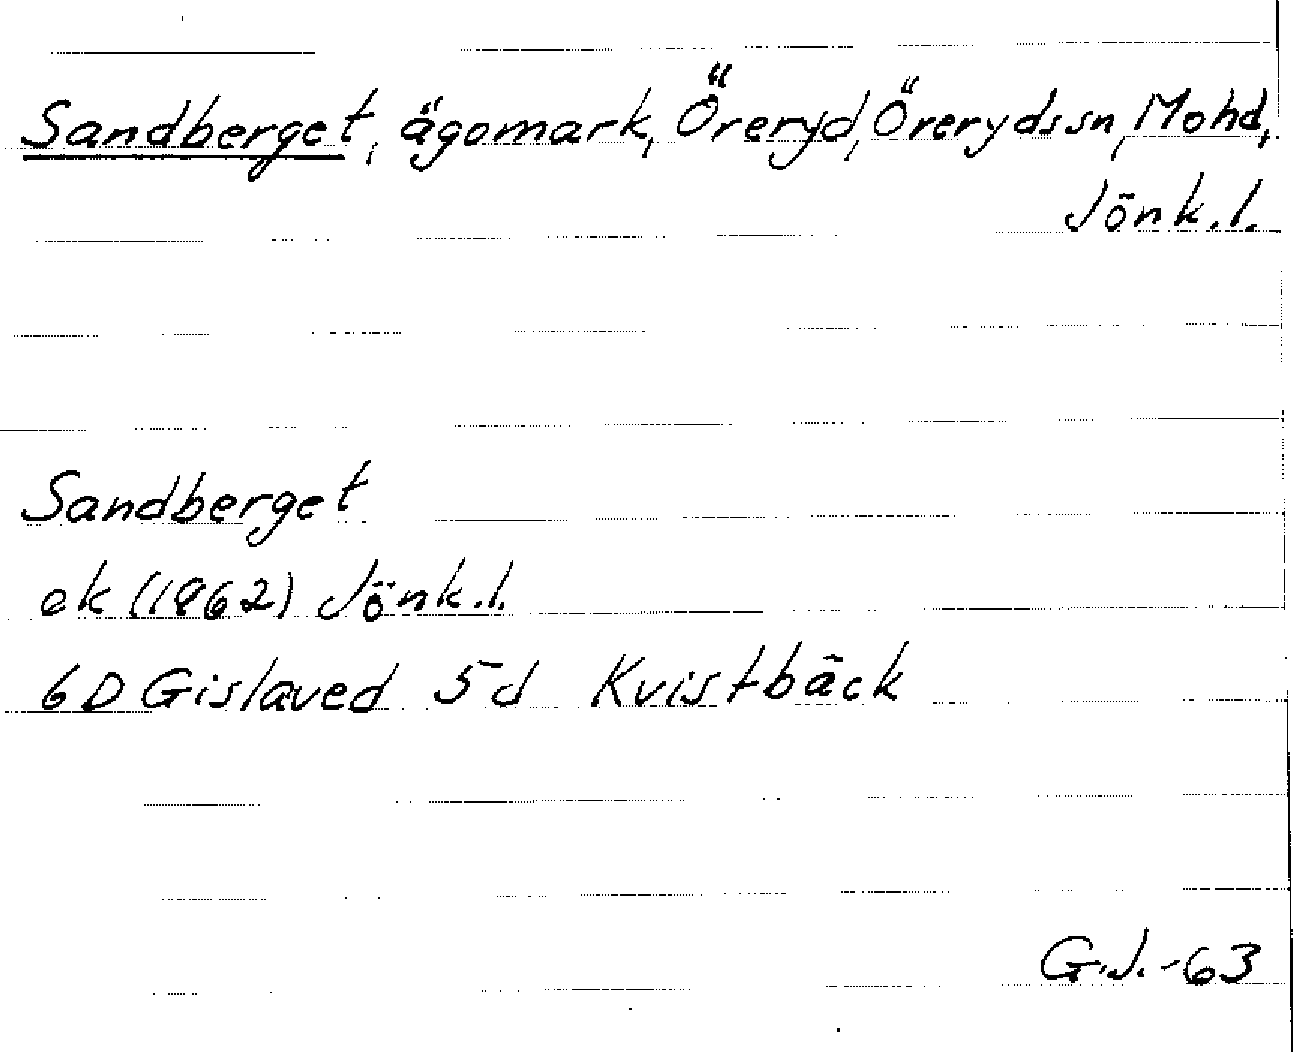 Sandberget, ägomark, Öreryd, Örerydssn, Mohd,
Jönk.l.
Sandberget
ek (1962) Jönk.l.
6D Gislaved 5d Kvistbäck
G.J.-63